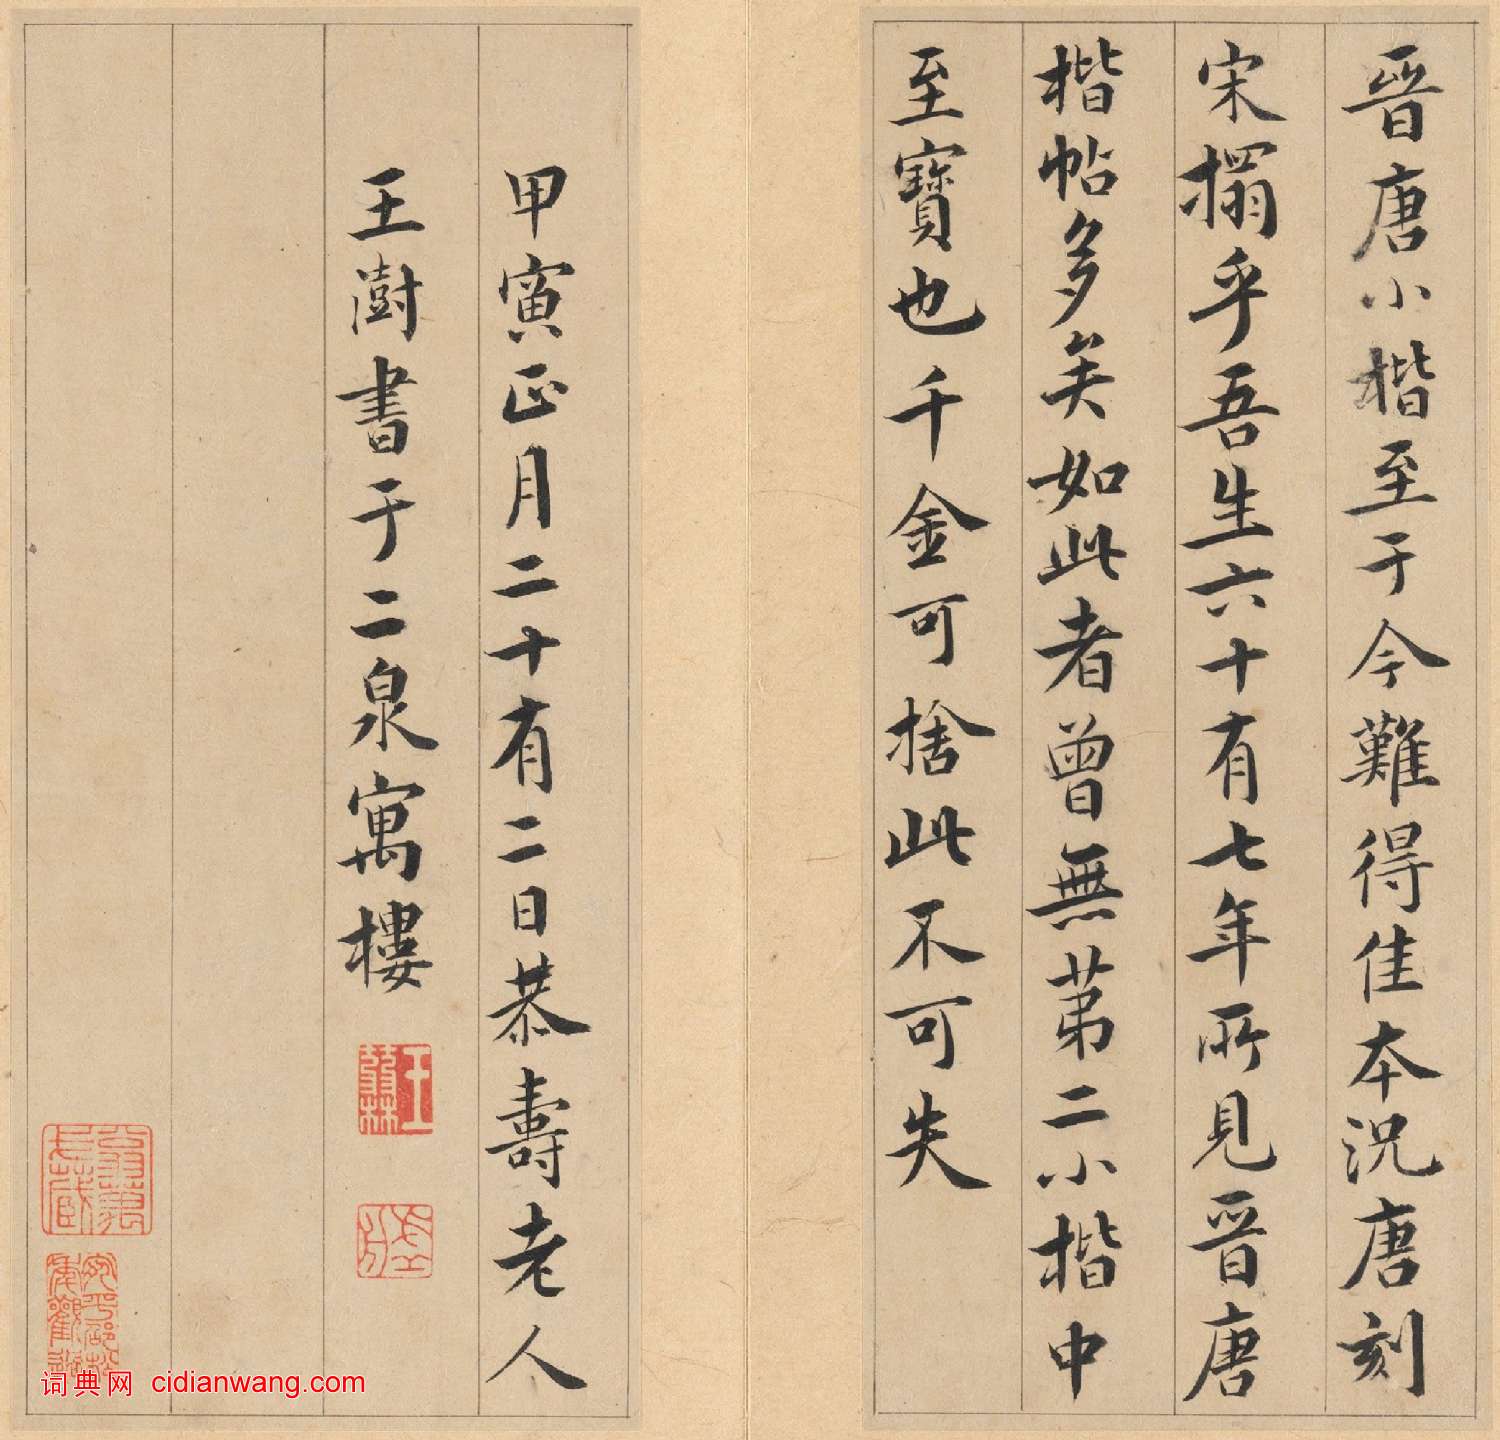 晉唐小楷至于今難得佳本況唐刻
宋搨乎吾生六十有七年所見晉唐
楷帖多矣如此者曾無苐二小楷中
至寶也千金可捨此不可失
甲寅正月二十有二日恭壽老人
王澍書于二泉寓樓
词典网 cidianwang.com